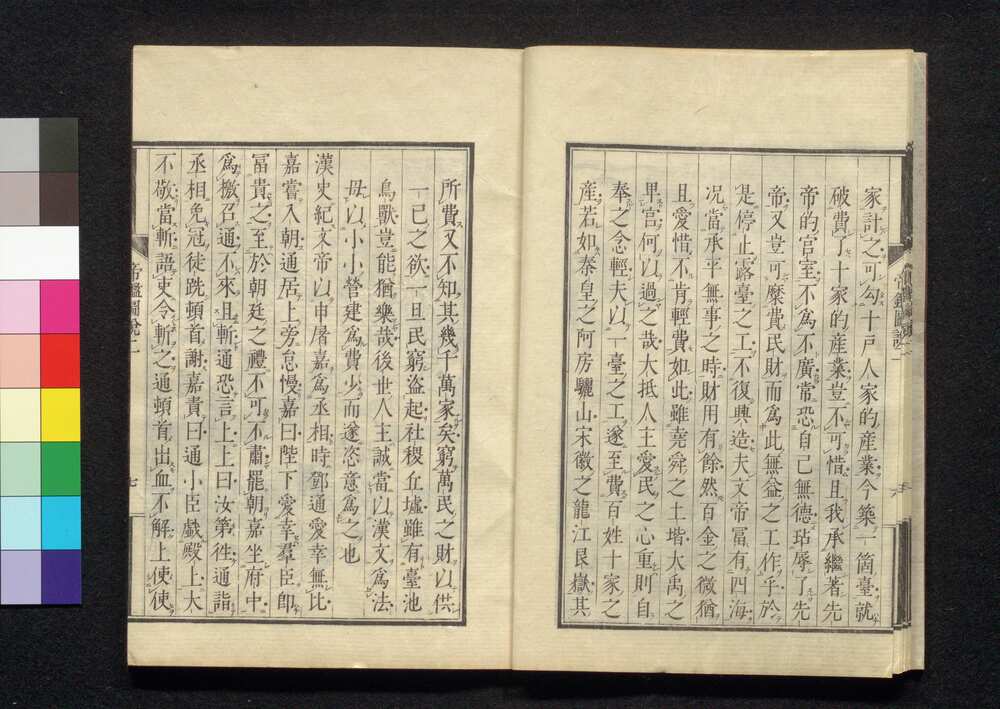 家計之可勾十戶人家的產業今築一箇臺就
破費了十家的產業豈不可惜且我承繼著先
帝的宮室不爲不廣常恐自己無德玷辱了先
帝又豈可糜費民財而爲此無益之工作乎於
是停止露臺之工不復興造夫文帝冨有四海
况當承平無事之時財用有餘然百金之微猶
且愛惜不肯輕費如此雖堯舜之土堦大禹之
卑宮何以過之哉大抵人主愛民之心重則自
奉之念輕夫以一臺之工遂至費百姓十家之
産若如秦皇之阿房驪山宋徽之龍江艮嶽其
所費又不知其幾千萬家矣窮萬民之財以供
一己之欲一旦民窮盜起社稷丘墟雖有臺池
鳥獸豈能獨樂哉後世人主誠當以漢文爲法
毋以小小營建爲費少而遂恣意爲之也
漢史紀文帝以申屠嘉爲丞相時鄧通愛幸無比
嘉嘗入朝通居上旁怠慢嘉曰陛下愛幸羣臣卽
冨貴之至於朝廷之禮不可不肅罷朝嘉坐府中
爲檄召通不來且斬通恐言上上曰汝第徃通詣
丞相免冠徒跣頓首謝嘉責曰通小臣戲殿上大
不敬當斬語吏今斬之通頓首出血不解上使使
帝鑑圖說二
七